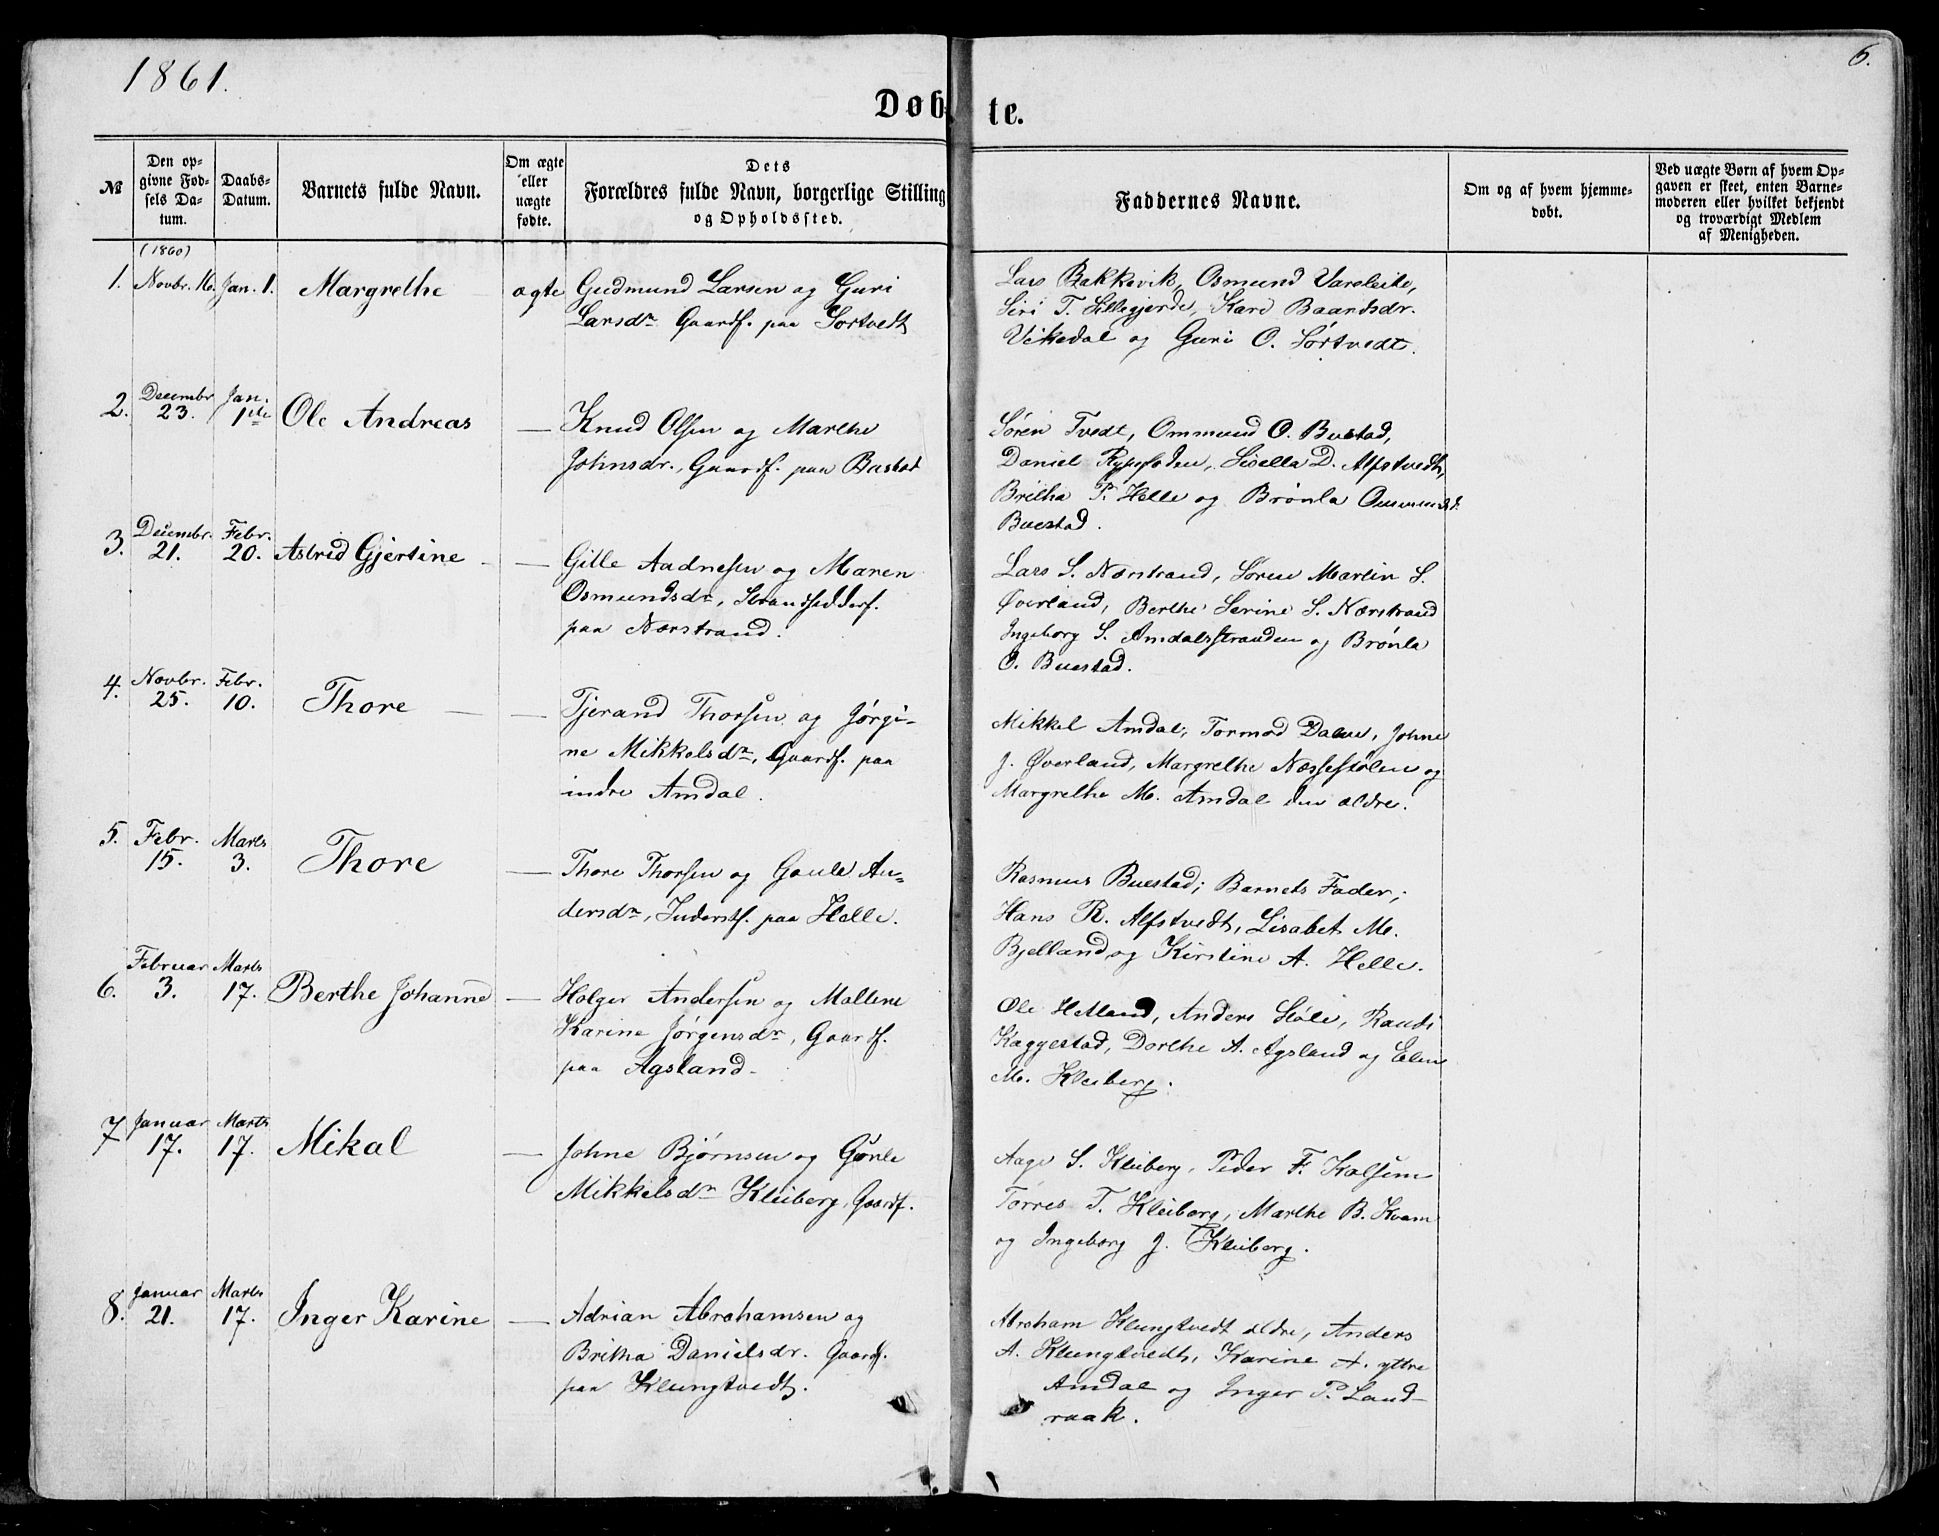 1861.
6.
Døbte.
№
Den opgivne Fødsels Datum.
Daabs-Datum.
Barnets fulde Navn.
Om ægte eller uægte fødte.
Dets Forældres fulde Navn, borgerlige Stilling og Opholdssted.
Faddernes Navne.
Om og af hvem hjemmedøbt.
Ved uægte Børn af hvem Opgaven er skeet, enten Barnemoderen eller hvilket bekjendt og troværdigt Medlem af Menigheden.
(1860)
1. Novbr. 16. Jan. 1. Margrethe ægte Gudmund Larsen og Guri
Larsdr Gaardf. paa Sørtvedt
Lars Bakkevik, Osmund Varaleite,
Siri T. Lillegjerde, Kari Baardsdr.
Vikedal og Guri O. Sørtvedt.
2. Decembr 23. Jan. 1ste Ole Andreas — Knud Olsen og Marthe
Johnsdr., Gaardf. paa Bustad
Søren Tvedt, Ommund O. Buestad,
Daniel, Sisella D. Alfstvedt,
Britha P. Helle og Brønla Ommundsd.
Buestad.
3. Decembr. 21. Febr. 20. Astrid Gjertine — Gille Aadnesen og Maren
Osmundsdr, Strandsidderf.
paa Nærstrand.
Lars S. Nærstrand, Søren Martin S.
Øverland, Berthe Serine S. Nærstrand
Ingeborg S. Amdalsstranden og Brønla
O. Buestad.
4. Novbr. 25. Febr. 10. Thore — Tjerand Thorsen og Jørgi-
ne Mikkelsdr, Gaardf. paa
indre Amdal.
Mikkel Amdal, Tormod Dalve, Johne
J. Øverland, Margrethe Næssestølen og
Margrethe M. Amdal den ældre.
5. Febr. 15. Marts 3. Thore — Thore Thorsen og Gønle An-
dersdr, Inderstf. paa Helle.
Rasmus Buestad; Barnets Fader;
Hans R. Alfstvedt, Lisabet M.
Bjelland og Kirstine A. Helle.
6. Februar 3. Marts 17. Berthe Johanne — Holger Andersen og Mallene
Karine Jørgensdr, Gaardf.
paa Agsland.
Ole Hetland, Anders Støle, Randi
Kaggestad, Dorthe A. Agsland og Elen
M. Kleiberg.
7 Januar 17. Marts 17. Mikal — Johne Bjørnsen og Gønle
Mikkelsdr Kleiberg, Gaardf.
Aage S. Kleiberg, Peder F. Kalsem
Torres T. Kleiberg, Marthe B. Kvam
og Ingeborg J. Kleiberg.
8. Januar 21. Marts 17. Inger Karine — Adrian Abrahamsen og
Britha Danielsdr. Gaardf.
paa Klungtvedt.
Abraham Klungtvedt ældre, Anders
A. Klungtvedt, Karine A. yttre
Amdal og Inger P. Land-
raak.